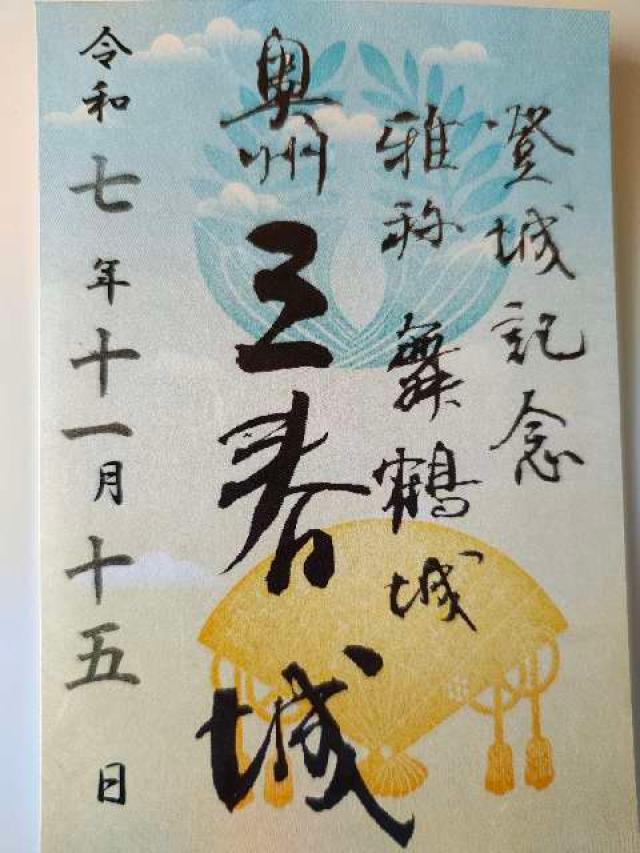 登城記念
雅称 舞鶴城
奥州三春城
令和七年十一月十五日